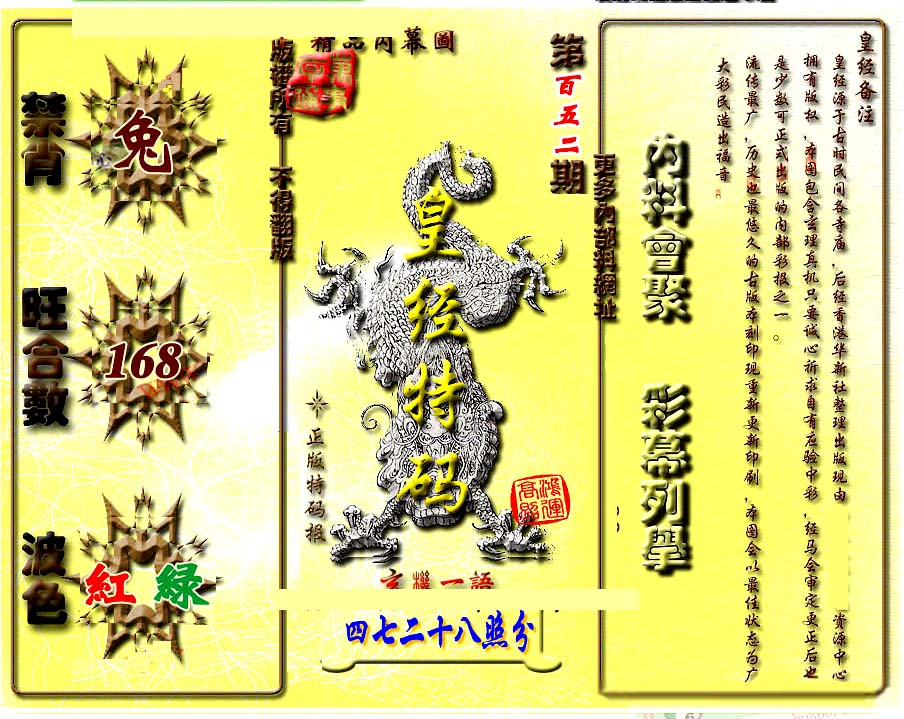 皇经备注
皇经源于古时民间各寺庙，后经香港华新社整理出版现由
资源中心
拥有版权，本图包含玄理真机只要诚心祈求自有应验中彩，经马会审定更正后也
是少数可正式出版的内部彩报之一。
流传最广，历史也最悠久的古版本刻印现重新更新印刷，本图会以最佳状态为广
大彩民造出福音
內料會聚
彩幕列舉
更多內部料網址
第百五二期
精品內幕圖
版權所有 不得翻版
皇经特码
正版特码报
鴻運高照
玄機一語
四七二十八照分
禁肖
兔
旺合數
168
波色
紅 綠